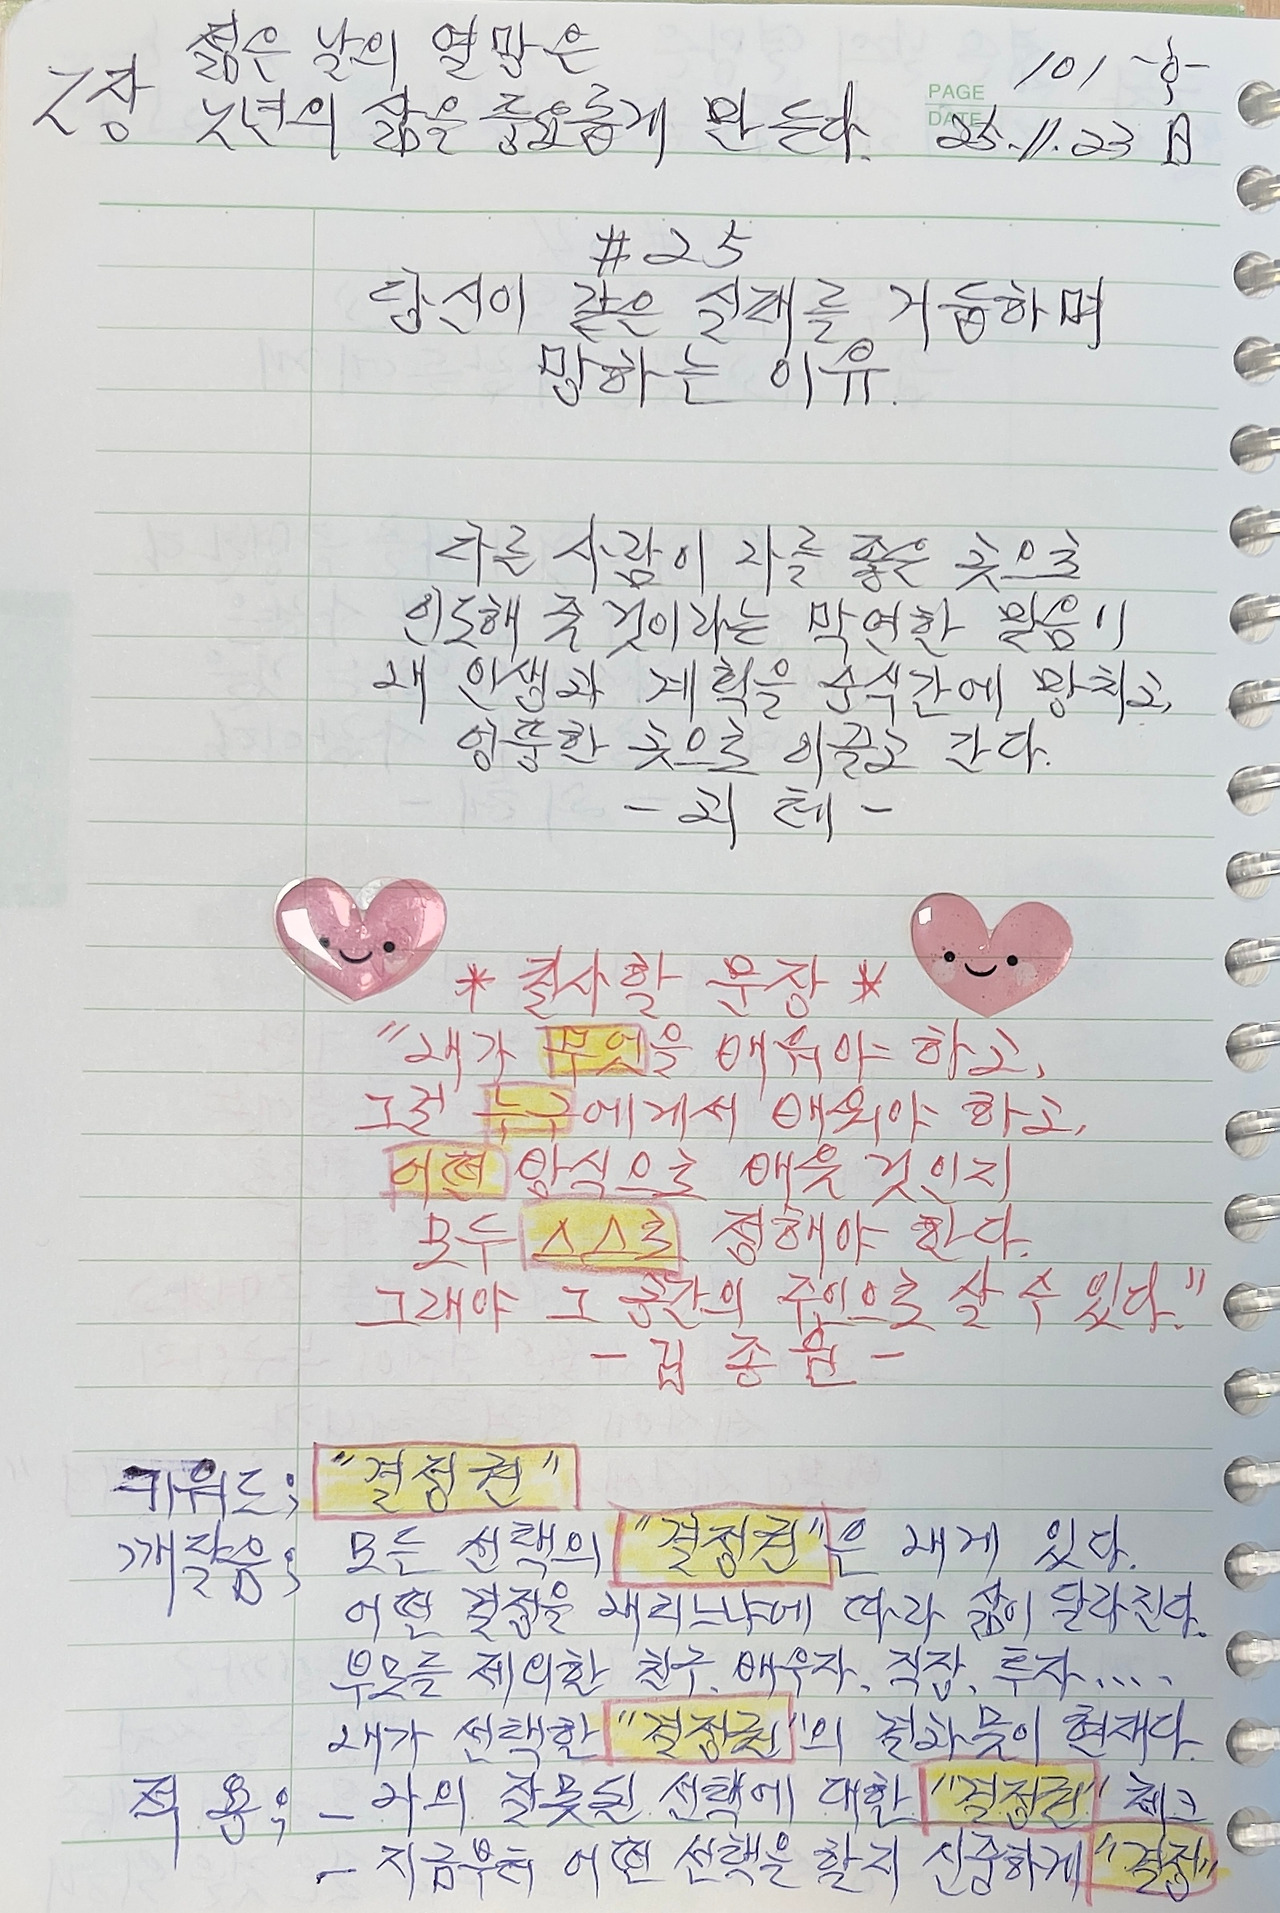 젊은 날의 열망은
2장 노년의 삶을 풍요롭게 만든다.
101쪽
PAGE
DATE
25.11.23 日
#25
당신이 같은 실패를 거듭하며
망하는 이유.
다른 사람이 나를 좋은 곳으로
인도해 줄 것이라는 막연한 믿음이
내 인생과 계획을 순식간에 망치고,
엉뚱한 곳으로 이끌고 간다.
- 괴테 -
* 필사할 문장 *
"내가 무엇을 배워야 하고,
그걸 누구에게서 배워야 하고,
어떤 방식으로 배울 것인지
모두 스스로 정해야 한다.
그래야 그 공간의 주인으로 살 수 있다."
- 김종원 -
키워드; "결정권"
깨달음; 모든 선택의 "결정권"은 내게 있다.
어떤 결정을 내리느냐에 따라 삶이 달라진다.
부모를 제외한 친구, 배우자, 직장, 투자....
내가 선택한 "결정권"의 결과물이 현재다.
적용; - 나의 잘못된 선택에 대한 "결정권" 체크
- 지금부터 어떤 선택을 할지 신중하게 "결정"